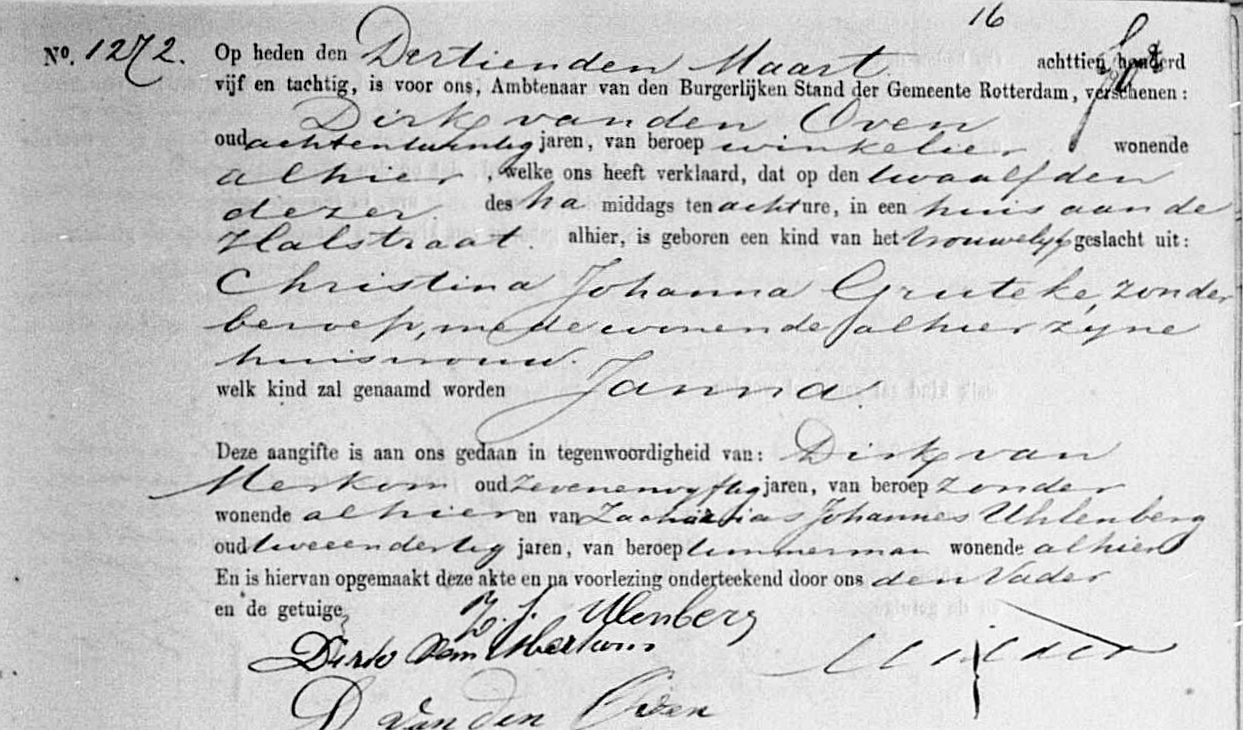 16
No. 1272. Op heden den Dertienden Maart achttien honderd
vijf en tachtig, is voor ons, Ambtenaar van den Burgerlijken Stand der Gemeente Rotterdam, verschenen:
Dirk van den Oven
oud achtentwintig jaren, van beroep winkelier wonende
alhier, welke ons heeft verklaard, dat op den twaalfden
dezer des na middags ten acht ure, in een huis aan de
Halstraat alhier, is geboren een kind van het vrouwelijk geslacht uit:
Christina Johanna Gruteke, zonder
beroep, mede wonende alhier zijne
huisvrouw.
welk kind zal genaamd worden Janna.
Deze aangifte is aan ons gedaan in tegenwoordigheid van: Dirk van
Merkom oud zevenenvyftig jaren, van beroep zonder
wonende alhier en van Zacharias Johannes Uhlenberg
oud tweeendertig jaren, van beroep timmerman wonende alhier
En is hiervan opgemaakt deze akte en na voorlezing onderteekend door ons den Vader
en de getuige
Z. J. Ulenberg
Dirk van Merkom
D van den Oven